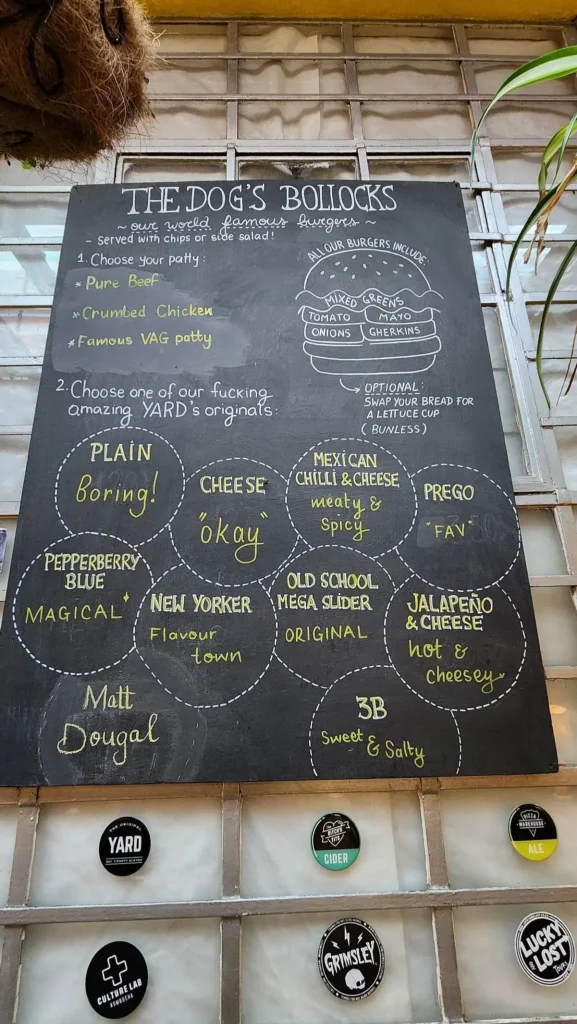 THE DOG'S BOLLOCKS
~ our world famous burgers ~
- Served with chips or side salad!
1. Choose your patty:
* Pure Beef
* Crumbed Chicken
* Famous VAG patty
ALL OUR BURGERS INCLUDE:
MIXED GREENS
TOMATO
MAYO
ONIONS
GHERKINS
OPTIONAL:
SWAP YOUR BREAD FOR
A LETTUCE CUP
(BUNLESS)
2. Choose one of our fucking
amazing YARD's originals:
PLAIN
boring!
CHEESE
"okay"
MEXICAN
CHILLI & CHEESE
meaty &
spicy
PREGO
"FAV"
PEPPERBERRY
BLUE
MAGICAL
NEW YORKER
Flavour
town
OLD SCHOOL
MEGA SLIDER
ORIGINAL
JALAPEÑO
& CHEESE
hot &
cheesey
Matt
Dougal
3B
Sweet & Salty
THE ORIGINAL
YARD
CIDER
WAREHOUSE
ALE
CULTURE LAB
KOMBUCHA
GRIMSLEY
LUCKY
LOST